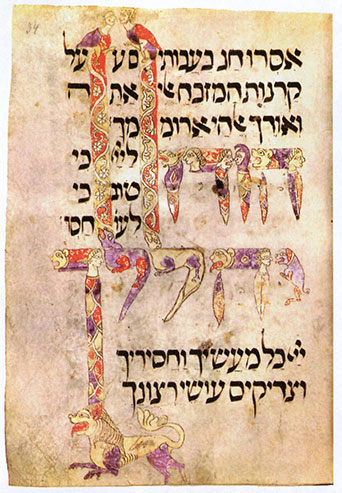 34
אסרו חג בעבותים עד
קרנות המזבח אלי אתה
ואודך אלהי ארוממך
הודו לייי כי
טוב כי
לעו חסדו
יהללוך
ייי כל מעשיך וחסידיך
וצדיקים עושי רצונך